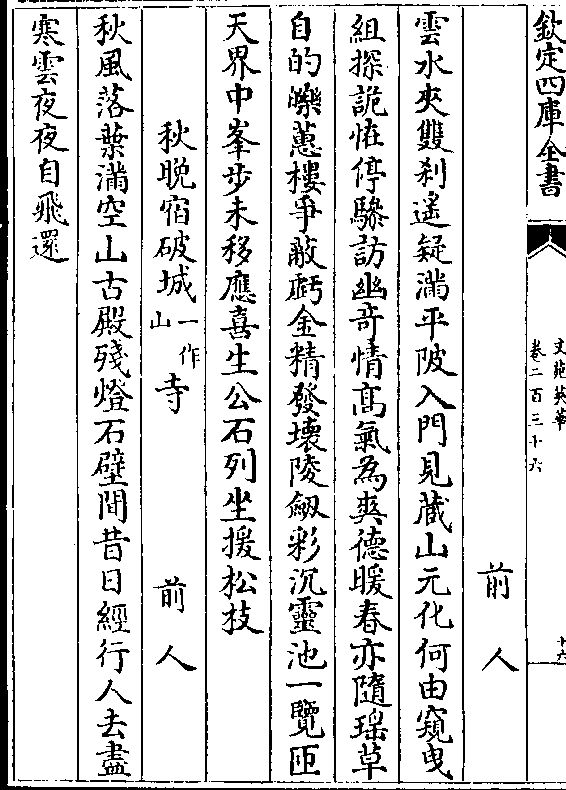 欽定四庫全書
文苑英華
卷二百三十六
十六
前人
雲水夾雙刹遥疑滿平陂入門見藏山元化何由窺曳
組探詭恠停驂訪幽奇情髙氣為爽徳暖春亦隨瑶草
自的皪蕙樓爭蔽虧金精發壊陵劔彩沉靈池一覽匝
天界中峯步未移應喜生公石列坐援松枝
秋晩宿破城一作山寺 前人
秋風落葉滿空山古殿殘燈石壁間昔日經行人去盡
寒雲夜夜自飛還